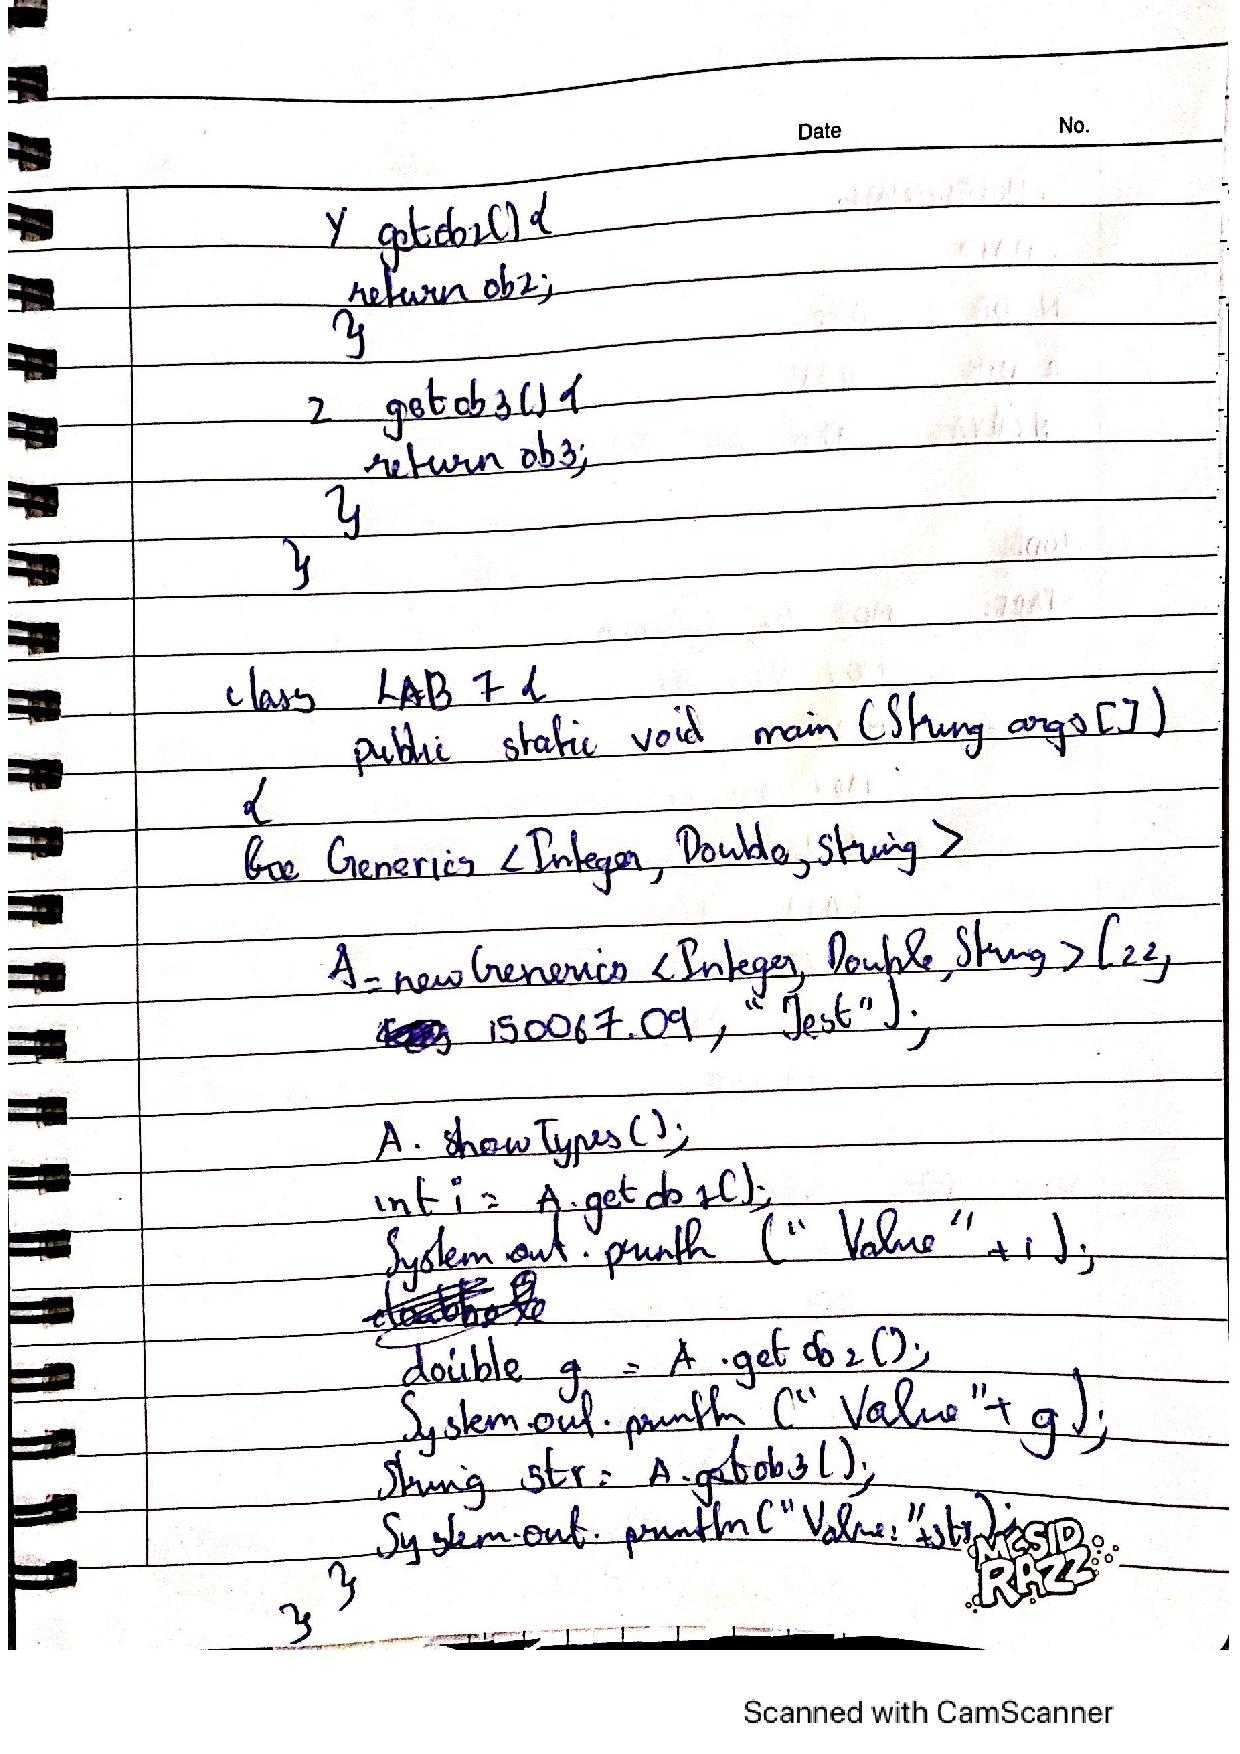 Date No.
Y getob2() {
return ob2;
}
Z getob3() {
return ob3;
}
}
class LAB 7 {
public static void main (String args[])
{
Generics <Integer, Double, String>
A = new Generics <Integer, Double, String> (22,
150067.09, "Test");
A. showTypes();
int i = A.getob1();
System.out.println ("Value" + i);
double g = A.getob2();
System.out.println ("Value" + g);
String str = A.getob3();
System.out.println ("Value: "+str);
MCSID
RAZZ
}
}
Scanned with CamScanner